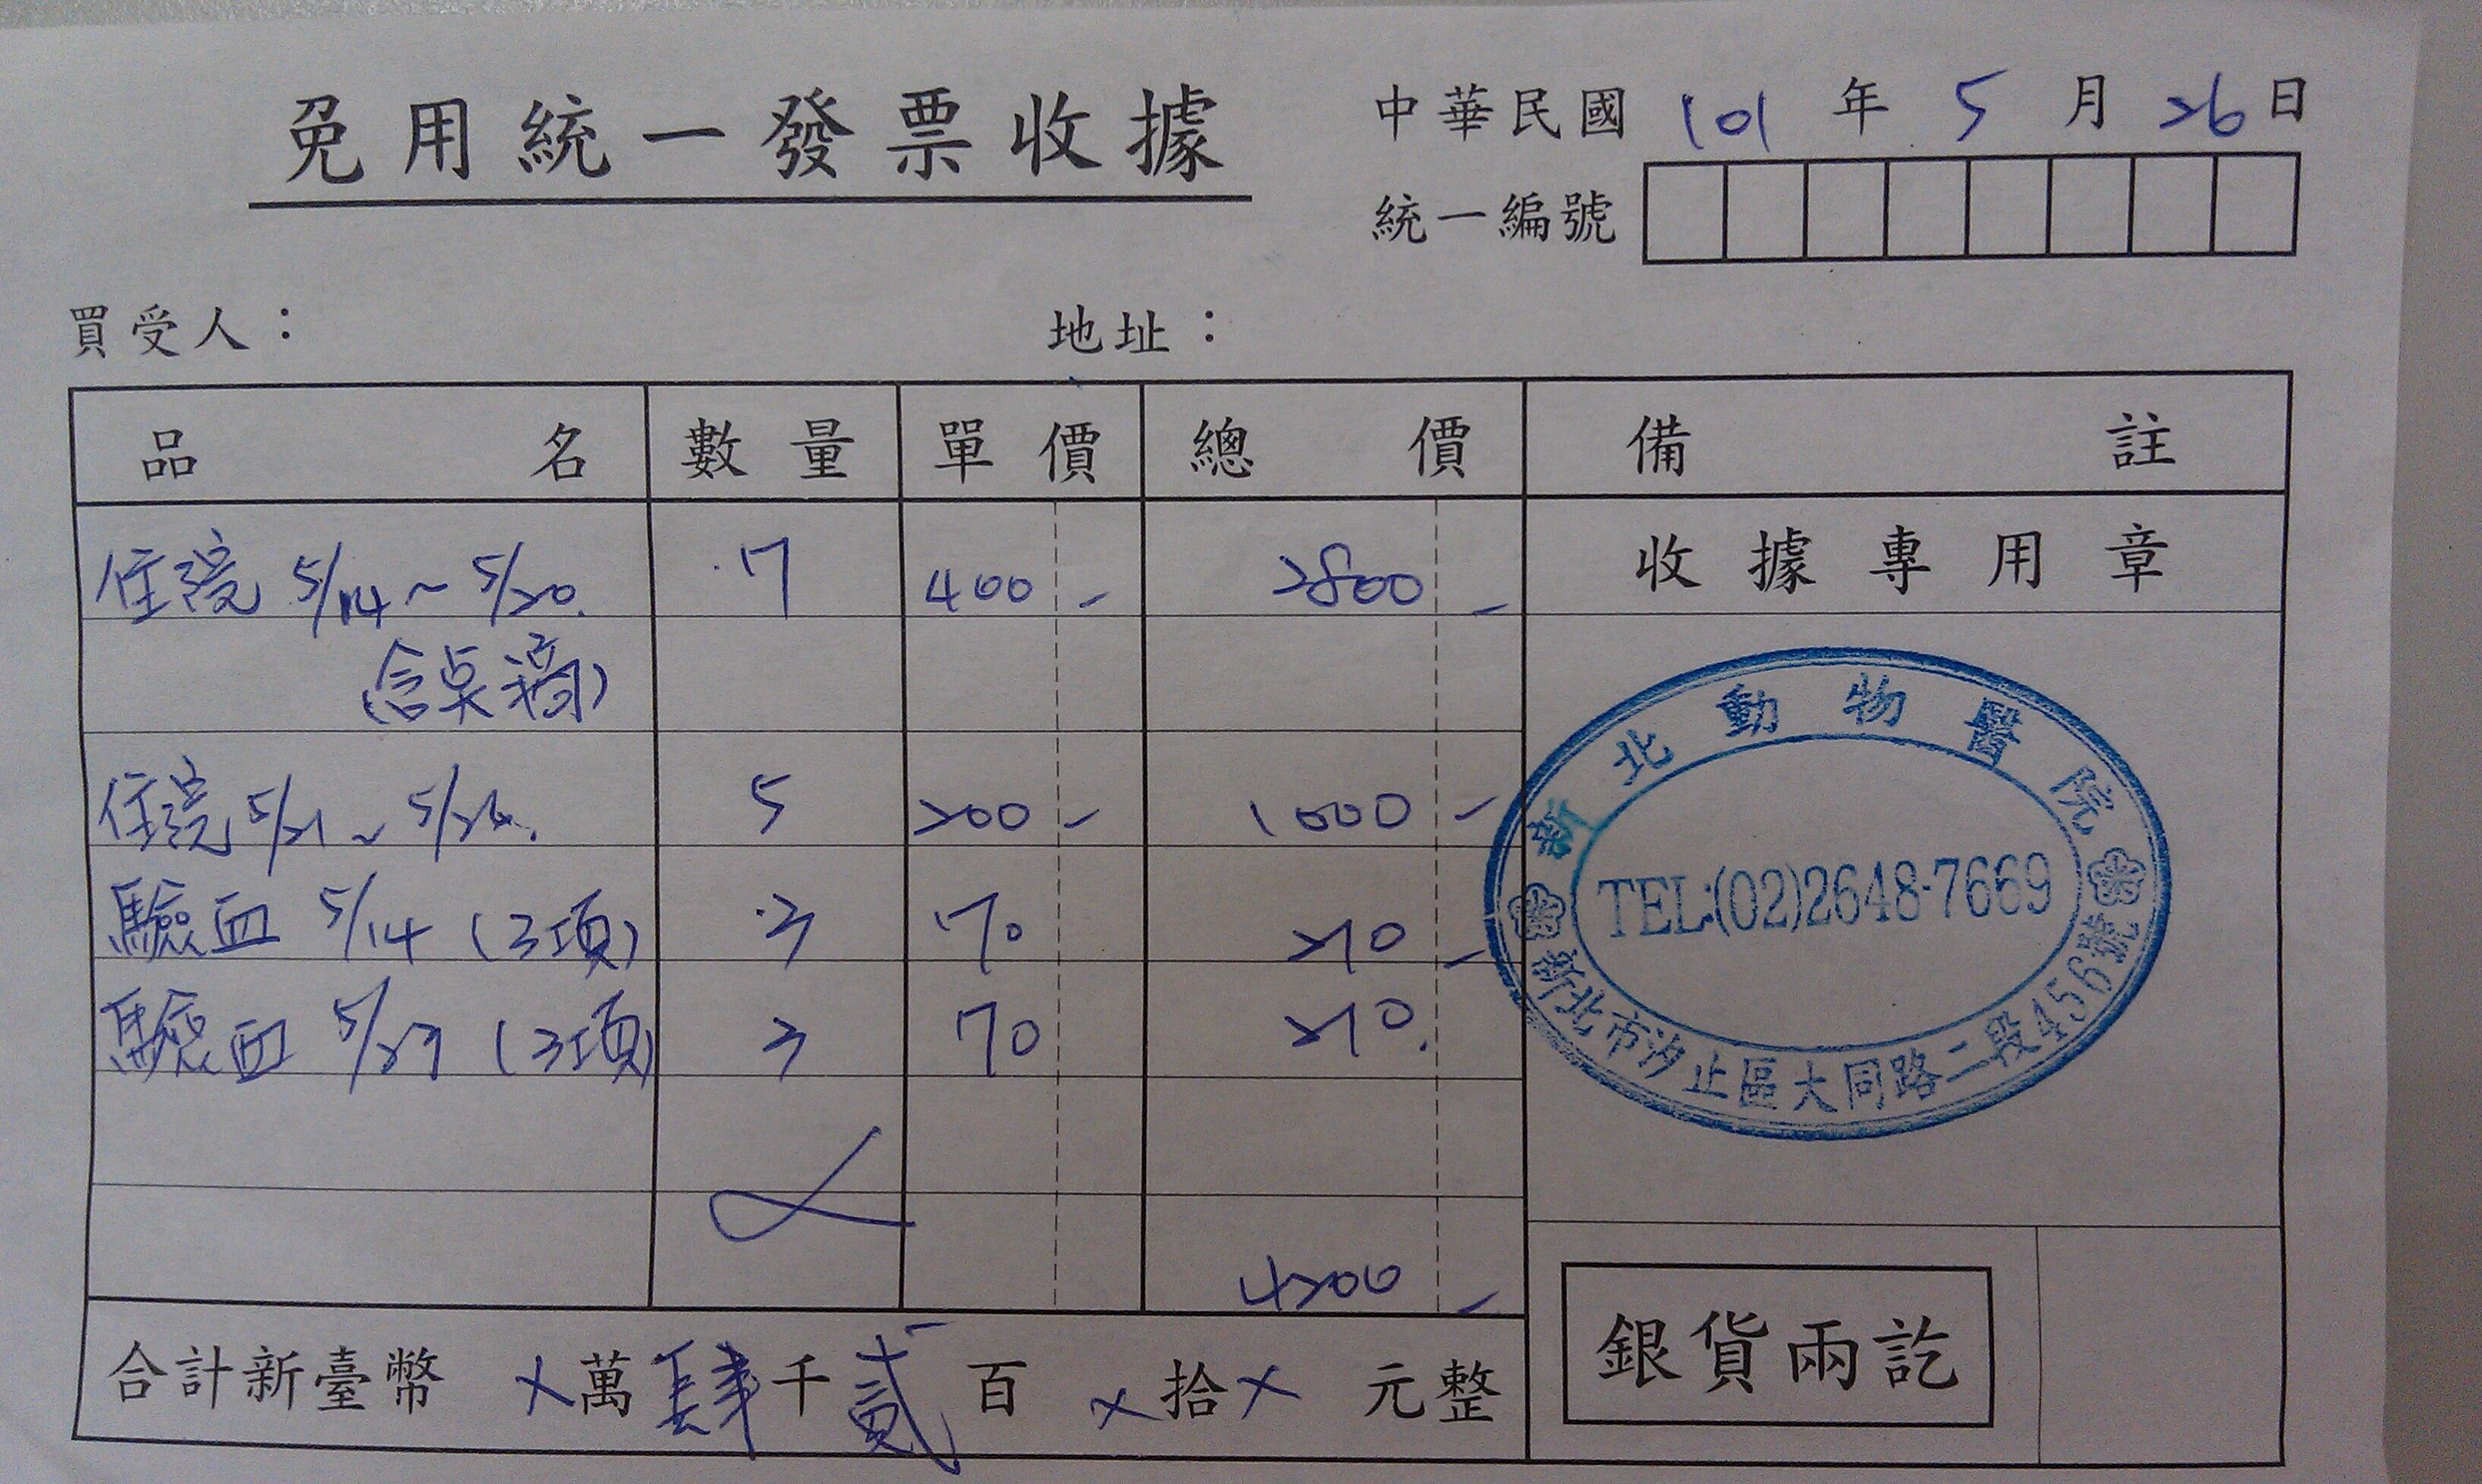 免用統一發票收據
中華民國 101 年 5 月 26 日
統一編號
買受人：
地址：
品名 數量 單價 總價 備註
住院 5/14~5/20. 7 400- 2800-
收據專用章
(含點滴)
住院 5/21~ 5 200- 1000-
驗血 5/14 (3項) 3 70 210-
驗血 (3項) 3 70 210.
4200-
合計新臺幣 ×萬肆千貳百×拾×元整
新北動物醫院
TEL:(02)2648-7669
新北市汐止區大同路二段456號
銀貨兩訖